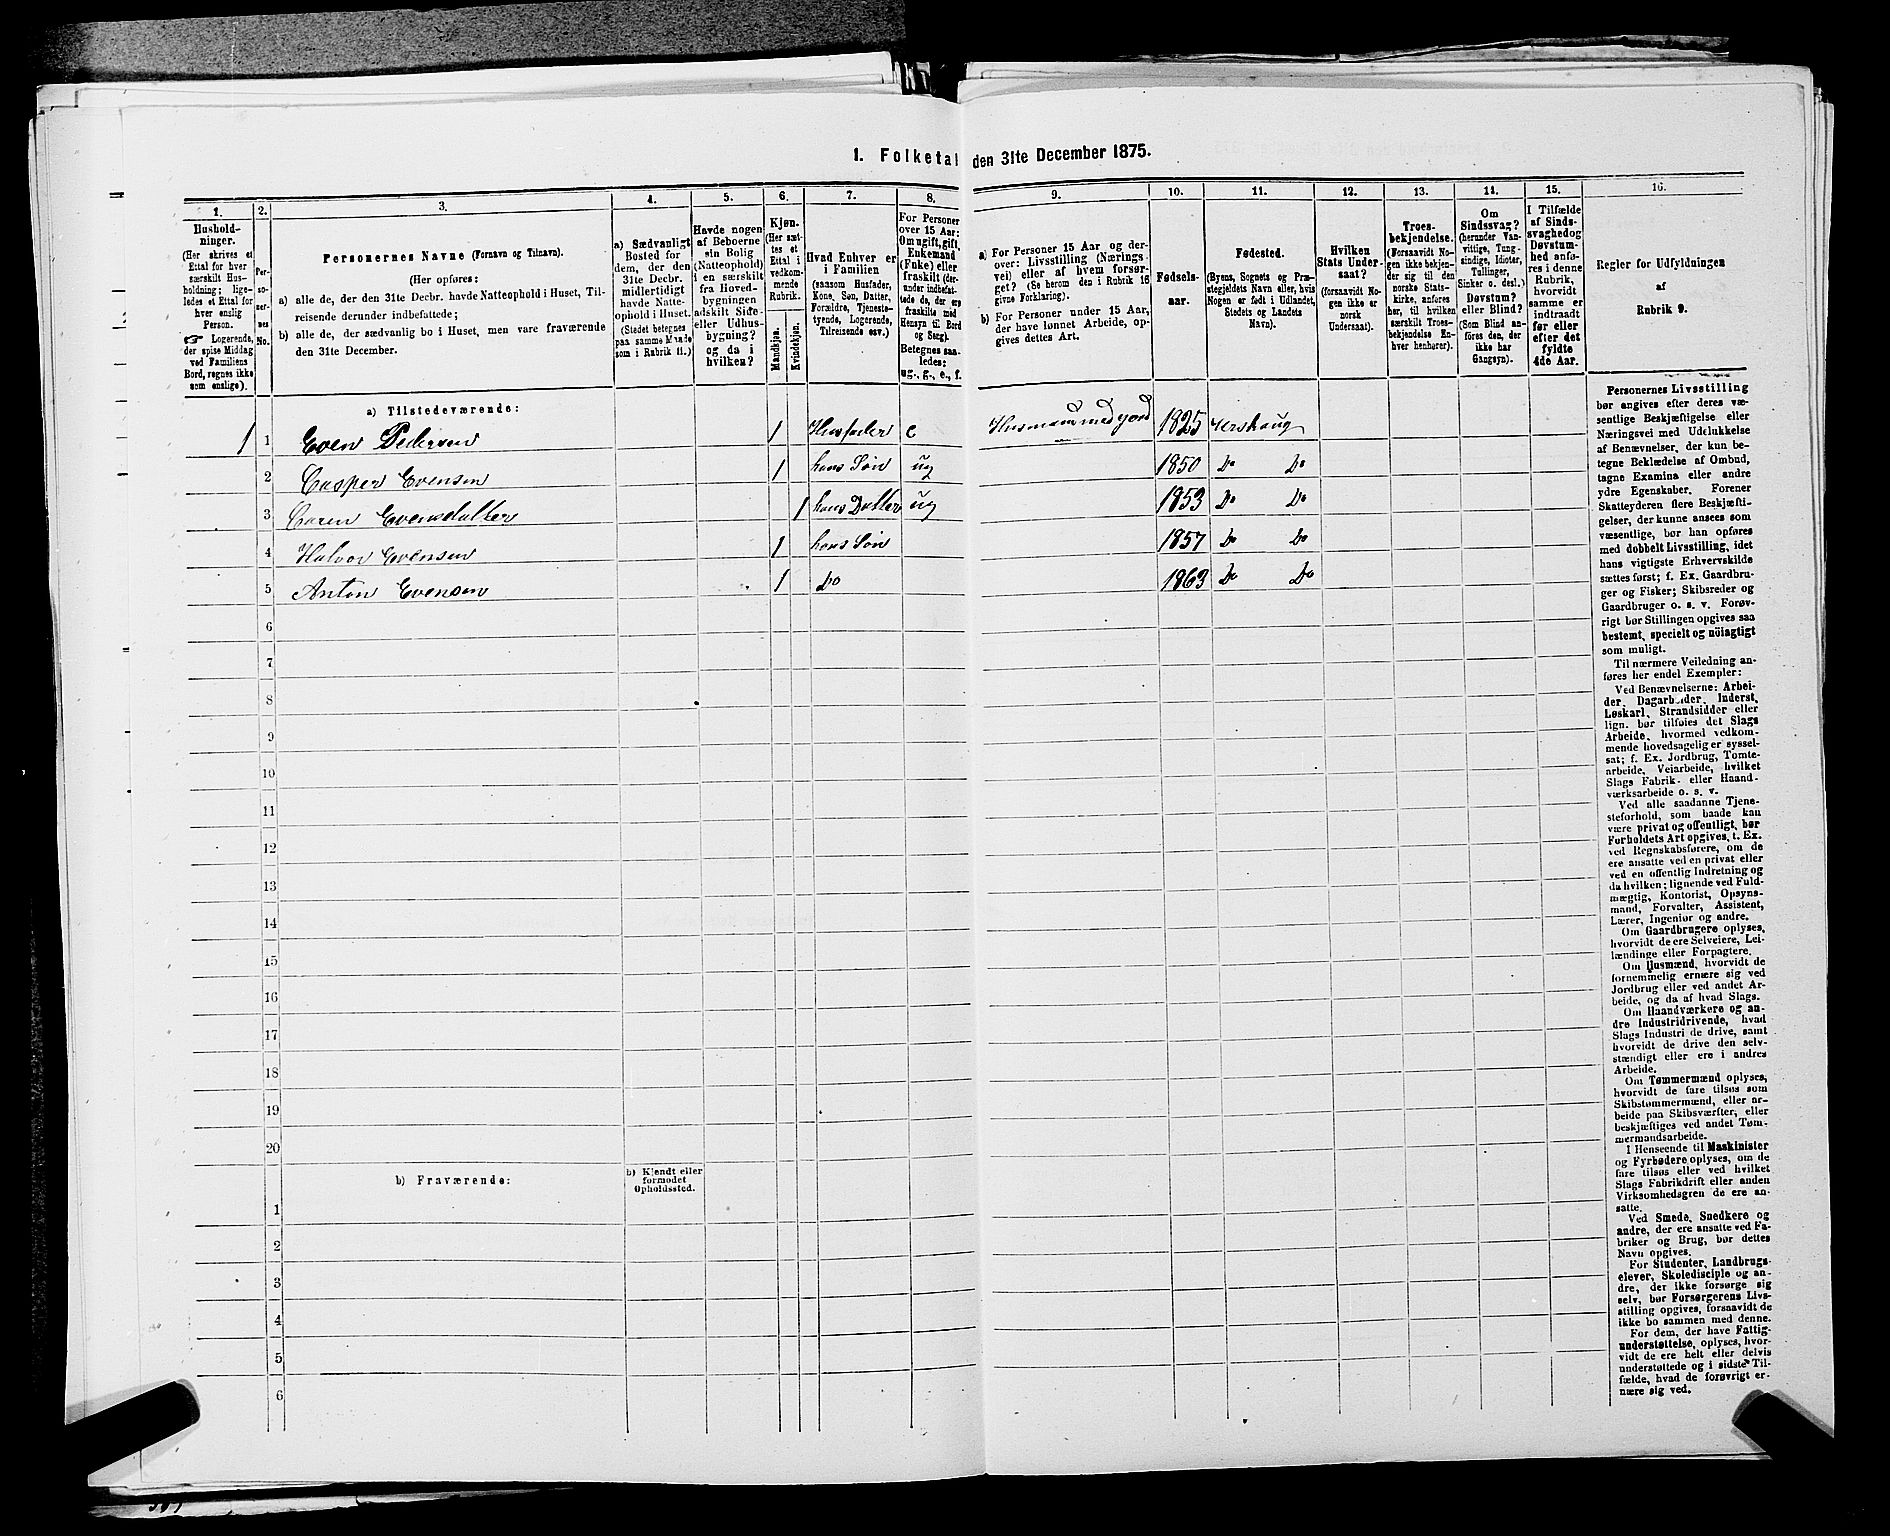 1. Folketal den 31te December 1875.
1.
2.
3.
4.
5.
6.
7.
8.
9.
10.
11.
12.
13.
14.
15.
16.
Hushold-
ninger.
(Her skrives et
Ettal for hver
særskilt Hus-
holdning; lige-
ledes et Ettal for
hver enslig
Person.
☞ Logerende,
der spise Middag
ved Familiens
Bord, regnes ikke
som enslige).
Per-
so-
ner-
nes
No.
Personernes Navne (Fornavn og Tilnavn).
(Her opføres:
a) alle de, der den 31te Decbr. havde Natteophold i Huset, Til-
reisende derunder indbefattede;
b) alle de, der sædvanlig bo i Huset, men vare fraværende
den 31te December.
a) Sædvanligt
Bosted for
dem, der den
31te Decbr.
midlertidigt
havde Natte-
ophold i Huset.
(Stedet betegnes
paa samme Maade
som i Rubrik 11.)
Havde nogen
af Beboerne
sin Bolig
(Natteophold)
i en særskilt
fra Hoved-
bygningen
adskilt Side-
eller Udhus-
bygning?
og da i
hvilken?
Kjøn.
(Her sæt-
tes et
Ettal i
vedkom-
mende
Rubrik.
Mandkjøn.
Kvindekjøn.
Hvad Enhver er
i Familien
(saasom Husfader,
Kone, Søn, Datter,
Forældre, Tjeneste-
tyende, Logerende,
Tilreisende osv.)
For Personer
over 15 Aar:
Om ugift, gift,
Enkemand
(Enke) eller
fraskilt (der-
under indbefat-
tede de, der ere
fraskilte med
Hensyn til Bord
og Seng).
Betegnes saa-
ledes:
ug., g., e., f.
a) For Personer 15 Aar og der-
over: Livsstilling (Nærings-
vei) eller af hvem forsør-
get? (Se herom den i Rubrik 16
givne Forklaring).
b) For Personer under 15 Aar,
der have lønnet Arbeide, op-
gives dettes Art.
Fødsels-
aar.
Fødested.
(Byens, Sognets og Præ-
stegjeldets Navn eller, hvis
Nogen er født i Udlandet,
Stedets og Landets
Navn).
Hvilken
Stats Under-
saat?
(forsaavidt No-
gen ikke er
norsk
Undersaat).
Troes-
bekjendelse.
(Forsaavidt No-
gen ikke bekjen-
der sig til den
norske Stats-
kirke, anføres
her, til hvilken
særskilt Troes-
bekjendelse En-
hver henhører).
Om
Sindssvag?
(herunder Van-
vittige, Tung-
sindige, Idioter,
Tullinger,
Sinker o. desl.)
Døvstum?
eller Blind?
(Som Blind an-
føres den, der
ikke har
Gangsyn).
I Tilfælde
af Sinds-
svaghed og
Døvstum-
hed anfø-
res i denne
Rubrik,
hvorvidt
samme er
indtraadt
før eller
efter det
fyldte
4de Aar.
Regler for Udfyldningen
af
Rubrik 9.
a) Tilstedeværende:
1 1 Even Pedersen 1 Husfader e Husmand med jord 1825 Urskoug
2 Casper Evensen 1 hans Søn ug 1850 Do Do
3 Caren Evensdatter 1 hans Datter ug 1853 Do Do
4 Halvor Evensen 1 hans Søn 1857 Do Do
5 Anton Evensen 1 Do 1863 Do Do
6
7
8
9
10
11
12
13
14
15
16
17
18
19
20
b) Fraværende:
b) Kjendt eller
formodet
Opholdssted.
1
2
3
4
5
6
Personernes Livsstilling
bør angives efter deres væ-
sentlige Beskjæftigelse eller
Næringsvei med Udelukkelse
af Benævnelser, der kun be-
tegne Beklædelse af Ombud,
tagne Examina eller andre
ydre Egenskaber. Forener
Skatteyderen flere Beskjæfti-
gelser, der kunne ansees som
væsentlige, bør han opføres
med dobbelt Livsstilling, idet
hans vigtigste Erhvervskilde
sættes først; f. Ex. Gaardbru-
ger og Fisker; Skibsreder og
Gaardbruger o. s. v. Forøv-
rigt bør Stillingen opgives saa
bestemt, specielt og nøiagtigt
som muligt.
Til nærmere Veiledning an-
føres her endel Exempler:
Ved Benævnelserne: Arbei-
der, Dagarbeider, Inderst,
Løskarl, Strandsidder eller
lign. bør tilføies det Slags
Arbeide, hvormed vedkom-
mende hovedsagelig er syssel-
sat; f. Ex. Jordbrug, Tomte-
arbeide, Veiarbeide, hvilket
Slags Fabrik- eller Haand-
værksarbeide o. s. v.
Ved alle saadanne Tjene-
steforhold, som baade kan
være privat og offentligt, bør
Forholdets Art opgives, t. Ex.
ved Regnskabsførere, om de
ere ansatte ved en privat eller
ved en offentlig Indretning og
da hvilken; lignende ved Fuld-
mægtig, Kontorist, Opsyns-
mand, Forvalter, Assistent,
Lærer, Ingeniør og andre.
Om Gaardbrugere oplyses,
hvorvidt de ere Selveiere, Lei-
lændinge eller Forpagtere.
Om Husmænd, hvorvidt de
fornemmelig ernære sig ved
Jordbrug eller ved andet Ar-
beide, og da af hvad Slags.
Om Haandværkere og an-
dre Industridrivende, hvad
Slags Industri de drive, samt
hvorvidt de drive den selv-
stændigt eller ere i andres
Arbeide.
Om Tømmermænd oplyses,
hvorvidt de fare tilsøs som
Skibstømmermænd, eller ar-
beide paa Skibsværfter, eller
beskjæftiges ved andet Tøm-
mermandsarbeide.
I Henseende til Maskinister
og Fyrbødere oplyses, om de
fare tilsøs eller ved hvilket
Slags Fabrikdrift eller anden
Virksomhedsgren de ere an-
satte.
Ved Smede, Snedkere og
andre, der ere ansatte ved Fa-
briker og Brug, bør dettes
Navn opgives.
For Studenter, Landbrugs-
elever, Skoledisciple og an-
dre, der ikke forsørge sig
selv, bør Forsørgerens Livs-
stilling opgives, forsaavidt de
ikke bo sammen med denne.
For dem, der have Fattig-
understøttelse, oplyses, hvor-
vidt de ere helt eller delvis
understøttede og i sidste Til-
fælde, hvad de forøvrigt er-
nære sig ved.